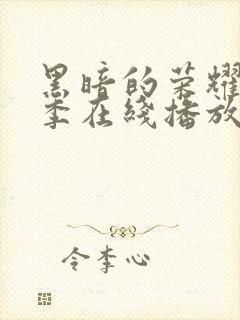 黑暗的荣耀
季在线播放
令李心